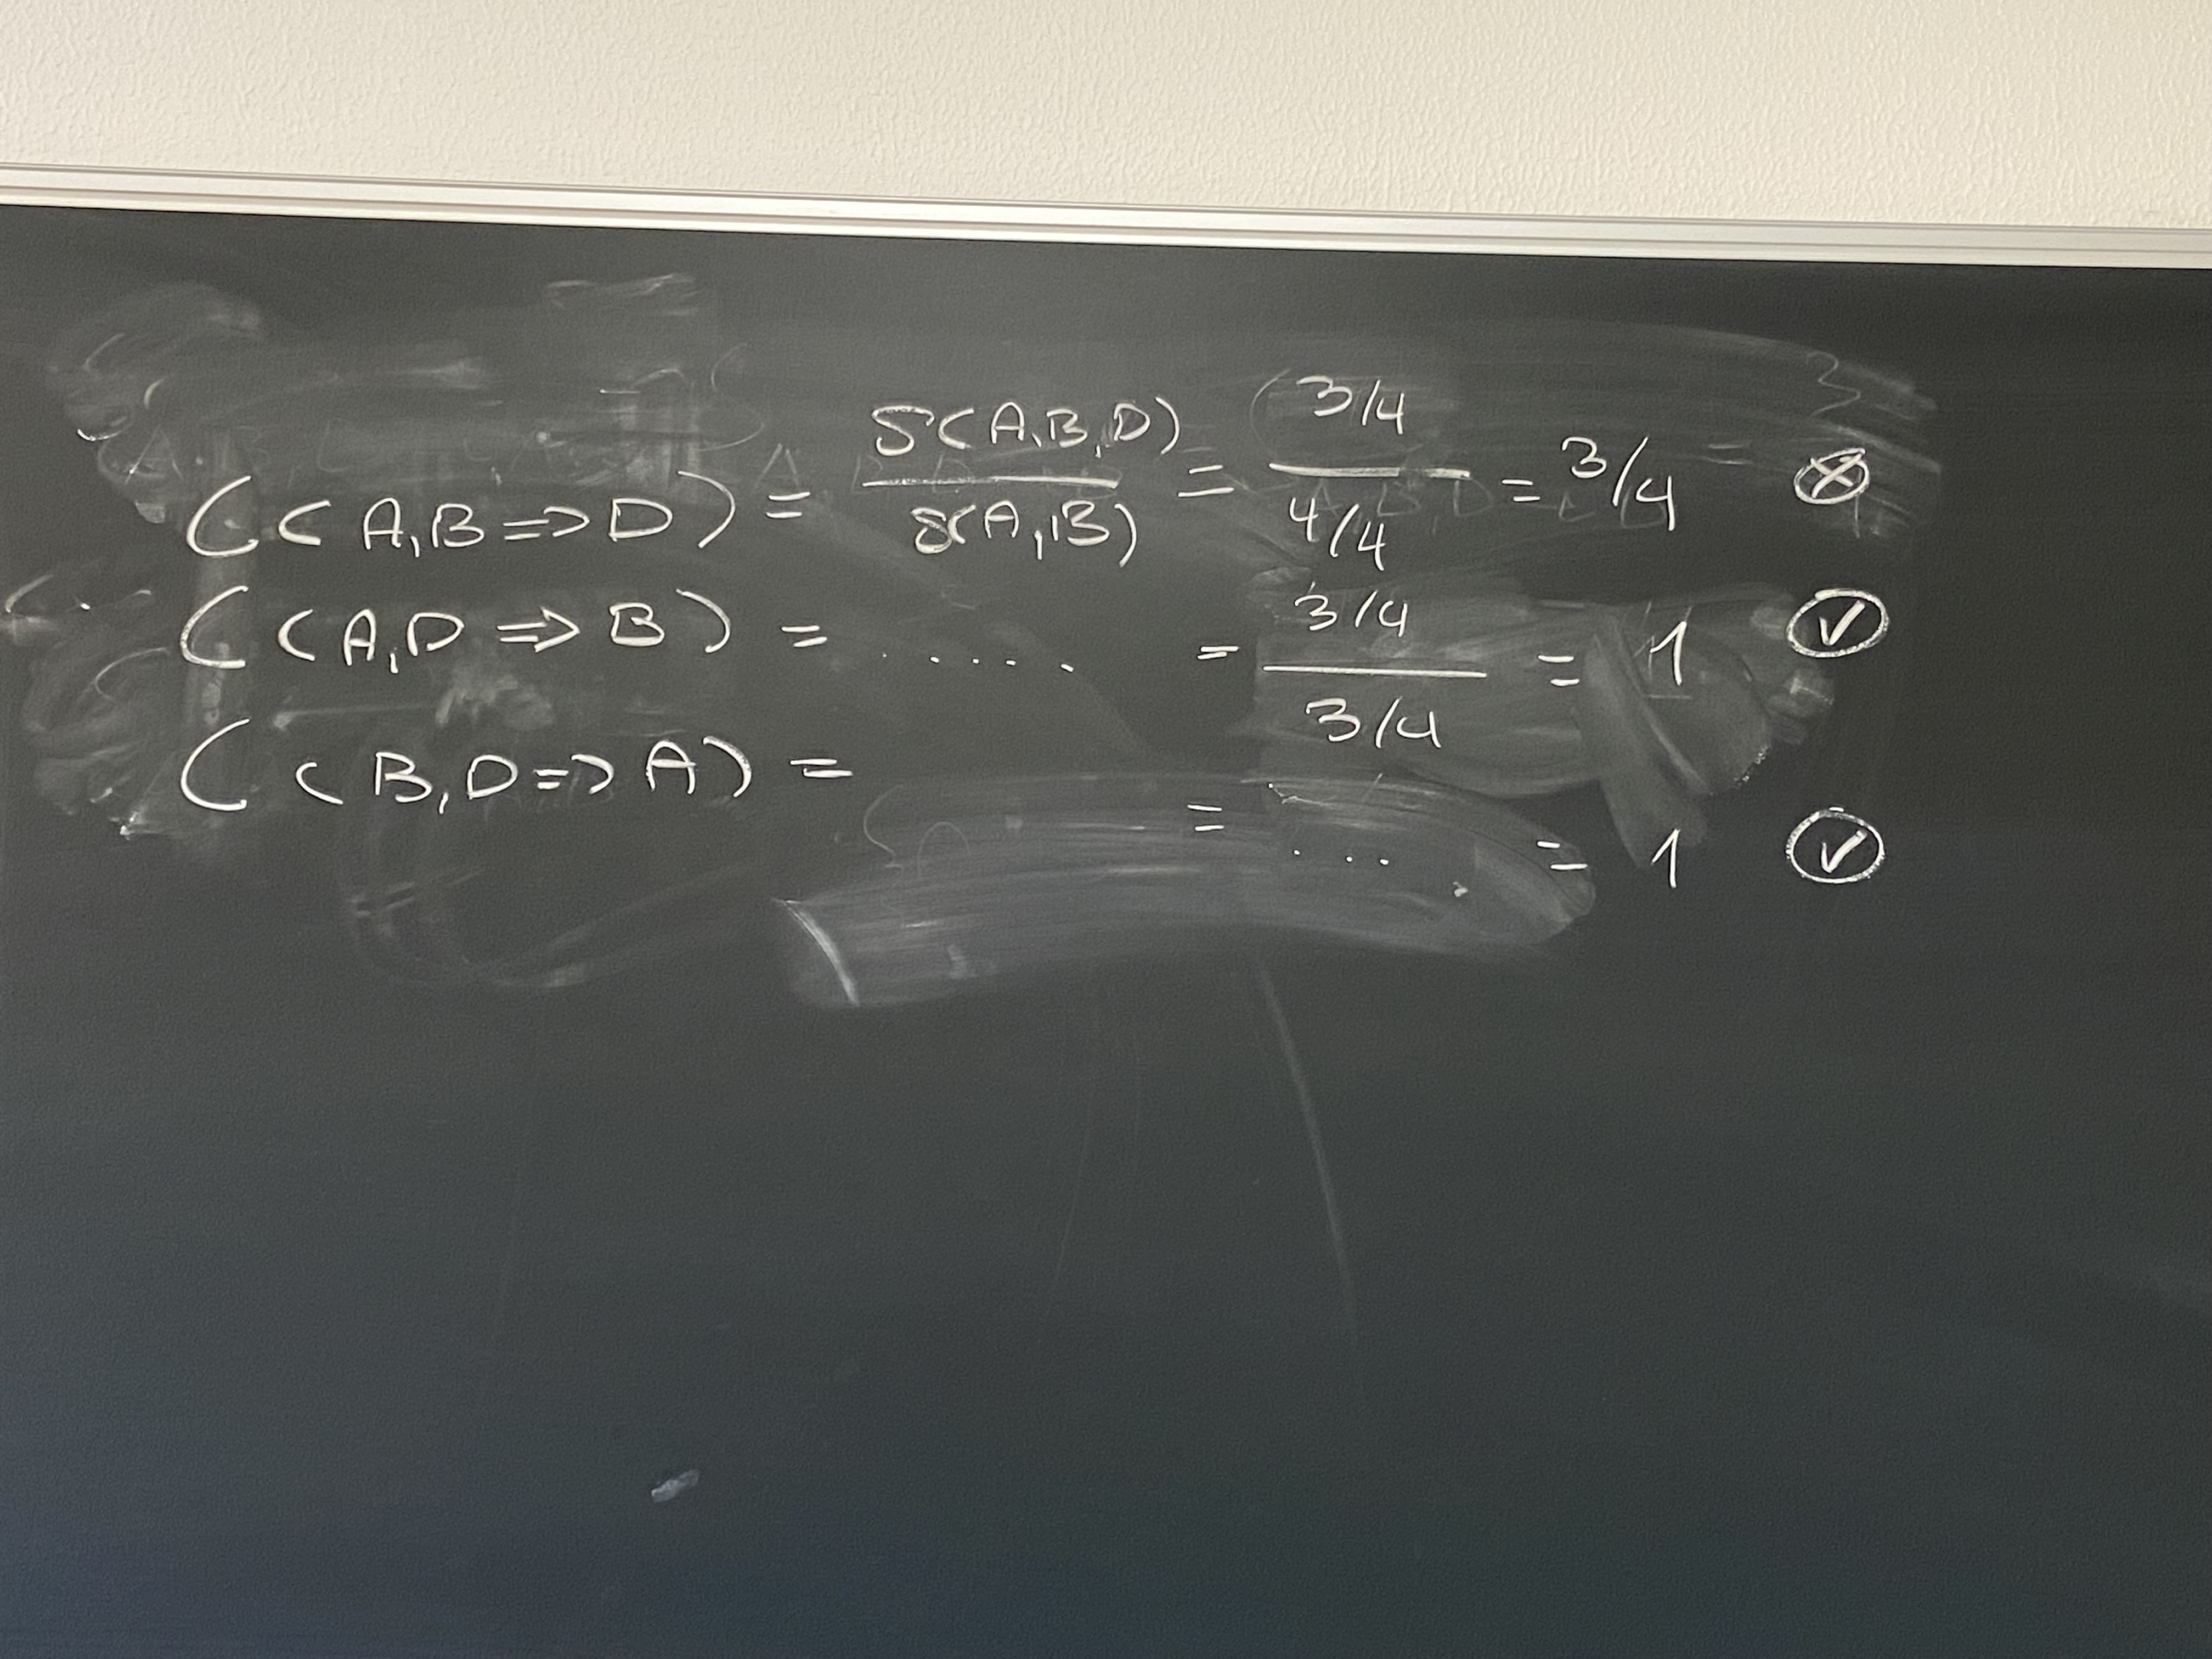 C(A,B => D) = S(A,B,D) / S(A,B) = 3/4 / 4/4 = 3/4 ⊗
C(A,D => B) = ..... = 3/4 / 3/4 = 1 ✓
C(B,D => A) = = .... = 1 ✓